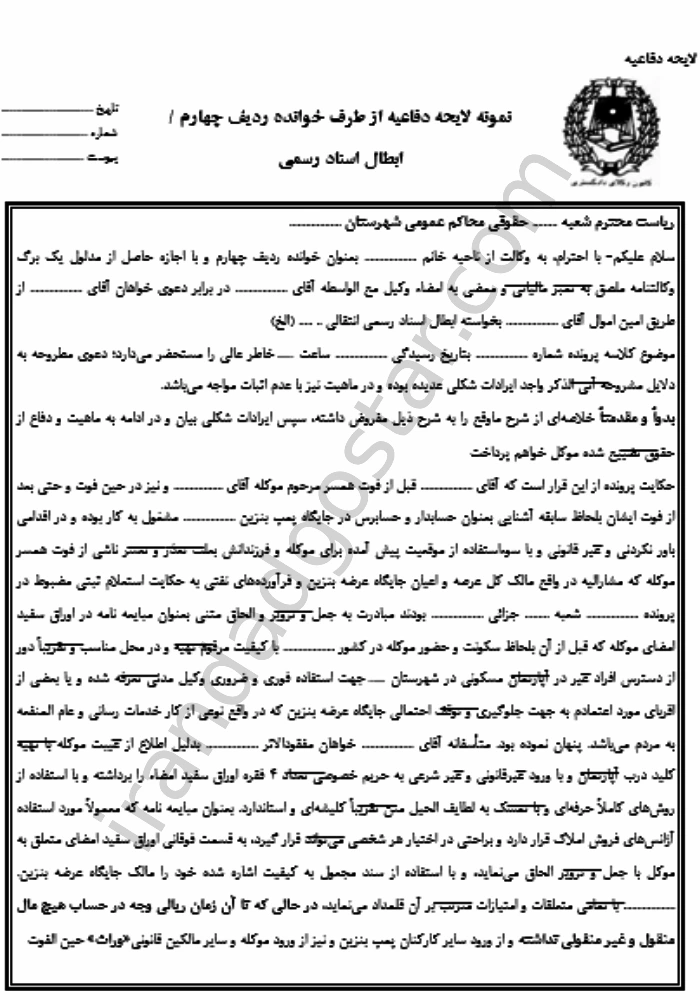 لایحه دفاعیه
نمونه لایحه دفاعیه از طرف خوانده ردیف چهارم /
ابطال اسناد رسمی
تاریخ
شماره
پیوست
کانون وکلای دادگستری
ریاست محترم شعبه ...... حقوقی محاکم عمومی شهرستان ............
سلام علیکم- با احترام، به وکالت از ناحیه خانم ............ بعنوان خوانده ردیف چهارم و با اجازه حاصل از مدلول یک برگ
وکالتنامه ملصق به تمبر مالیاتی و ممضی به امضاء وکیل مع الواسطه آقای ............ در برابر دعوی خواهان آقای ............ از
طریق امین اموال آقای ............ بخواسته ابطال اسناد رسمی انتقالی .. ... (الخ)
موضوع کلاسه پرونده شماره ............ بتاریخ رسیدگی ............ ساعت .... خاطر عالی را مستحضر می‌دارد؛ دعوی مطروحه به
دلایل مشروحه آتی الذکر واجد ایرادات شکلی عدیده بوده و در ماهیت نیز با عدم اثبات مواجه می‌باشد.
بدواً و مقدمتاً خلاصه‌ای از شرح ماوقع را به شرح ذیل مفروض داشته، سپس ایرادات شکلی بیان و در ادامه به ماهیت و دفاع از
حقوق تضییع شده موکل خواهم پرداخت
حکایت پرونده از این قرار است که آقای ............ قبل از فوت همسر مرحوم موکله آقای ............ و نیز در حین فوت و حتی بعد
از فوت ایشان بلحاظ سابقه آشنایی بعنوان حسابدار و حسابرس در جایگاه پمپ بنزین ............ مشغول به کار بوده و در اقدامی
باور نکردنی و غیر قانونی و با سوءاستفاده از موقعیت پیش آمده برای موکله و فرزندانش بعلت تعذر و تعسر ناشی از فوت همسر
موکله که مشارالیه در واقع مالک کل عرصه و اعیان جایگاه عرضه بنزین و فرآورده‌های نفتی به حکایت استعلام ثبتی مضبوط در
پرونده ............ شعبه ...... جزائی ............ بودند مبادرت به جعل و تزویر و الحاق متنی بعنوان مبایعه نامه در اوراق سفید
امضای موکله که قبل از آن بلحاظ سکونت و حضور موکله در کشور ............ با کیفیت مرقوم تهیه و در محل مناسب و تقریباً دور
از دسترس افراد غیر در آپارتمان مسکونی در شهرستان .... جهت استفاده فوری و ضروری وکیل مدنی تعرفه شده و یا بعضی از
اقربای مورد اعتمادم به جهت جلوگیری و توقف احتمالی جایگاه عرضه بنزین که در واقع نوعی از کار خدمات رسانی و عام المنفعه
به مردم می‌باشد. پنهان نموده بود. متأسفانه آقای ............ خواهان مفقودالاثر ............ بدلیل اطلاع از غیبت موکله با تهیه
کلید درب آپارتمان و با ورود غیرقانونی و غیر شرعی به حریم خصوصی تعداد ۴ فقره اوراق سفید امضاء را برداشته و با استفاده از
روش‌های کاملاً حرفه‌ای و با تمسک به لطایف الحیل متن تقریباً کلیشه‌ای و استاندارد. بعنوان مبایعه نامه که معمولاً مورد استفاده
آژانس‌های فروش املاک قرار دارد و براحتی در اختیار هر شخصی می‌تواند قرار گیرد، به قسمت فوقانی اوراق سفید امضای متعلق به
موکل با جعل و تزویر الحاق می‌نماید، و با استفاده از سند مجعول به کیفیت اشاره شده خود را مالک جایگاه عرضه بنزین.
............ با تمامی متعلقات و امتیازات مترتب بر آن قلمداد می‌نماید، در حالی که تا آن زمان ریالی وجه در حساب هیچ مال
منقول و غیر منقولی نداشته و از ورود سایر کارکنان پمپ بنزین و نیز از ورود موکله و سایر مالکین قانونی«وراث» حین الفوت
irandadgostar.com